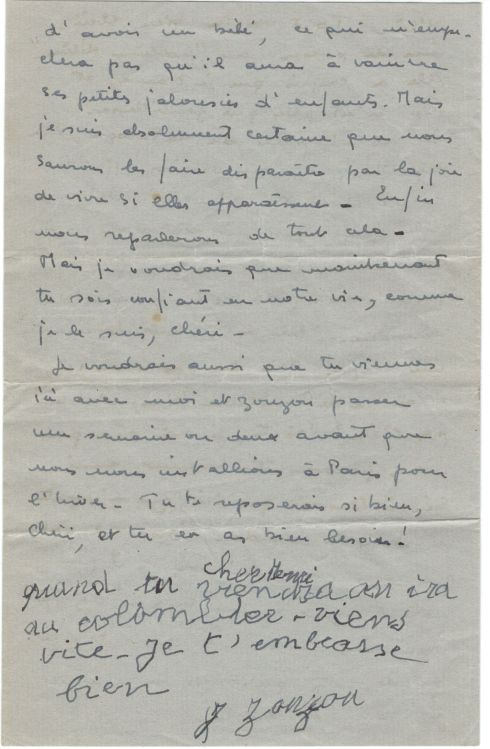 d'avoir un bébé, ce qui n'empê-
chera pas qu'il aura à vaincre
ses petits jalousies d'enfants. Mais
je suis absolument certaine que nous
saurons les faire disparaître par la joie
de vivre si elles apparaissent - Enfin
nous reparlerons de tout cela -
Mais je voudrais que maintenant
tu sois confiant en notre vie, comme
je le suis, chéri -
Je voudrais aussi que tu viennes
ici avec moi et Zouzou passer
une semaine ou deux avant que
nous nous installions à Paris pour
l'hiver - Tu te reposerais si bien,
chéri, et tu en as bien besoin !
cher Henri
quand tu viendra on ira
au colombier - viens
vite - Je t'embrasse
bien
Zouzou